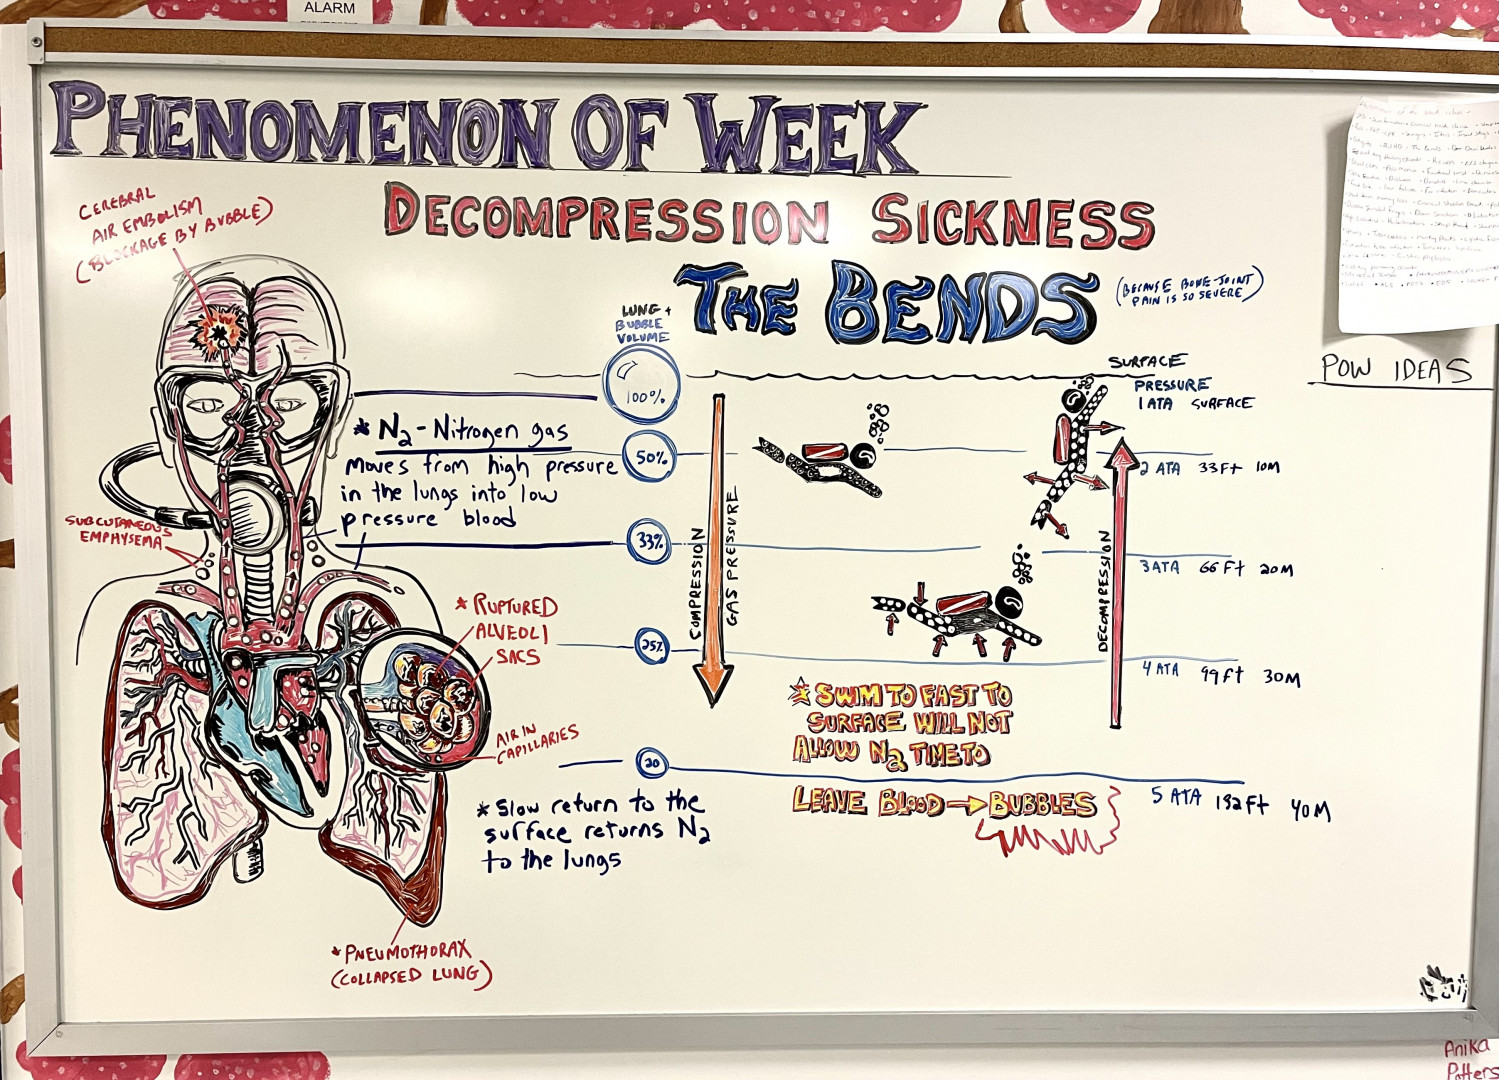 ALARM
PHENOMENON OF WEEK
DECOMPRESSION SICKNESS
THE BENDS
(BECAUSE BONE-JOINT
PAIN IS SO SEVERE)
CEREBRAL
AIR EMBOLISM
(BLOCKAGE BY BUBBLE)
LUNG +
BUBBLE
VOLUME
100%
50%
33%
25%
20
* N2 - Nitrogen gas
moves from high pressure
in the lungs into low
pressure blood
SUBCUTANEOUS
EMPHYSEMA
* RUPTURED
ALVEOLI
SACS
AIR IN
CAPILLARIES
* Slow return to the
surface returns N2
to the lungs
* PNEUMOTHORAX
(COLLAPSED LUNG)
COMPRESSION
GAS PRESSURE
DECOMPRESSION
SURFACE
PRESSURE
1 ATA SURFACE
2 ATA 33 Ft 10M
3 ATA 66 Ft 20M
4 ATA 99 Ft 30M
5 ATA 132 Ft 40M
* SWIM TO FAST TO
SURFACE WILL NOT
ALLOW N2 TIME TO
LEAVE BLOOD → BUBBLES
POW IDEAS
Anika
Potters